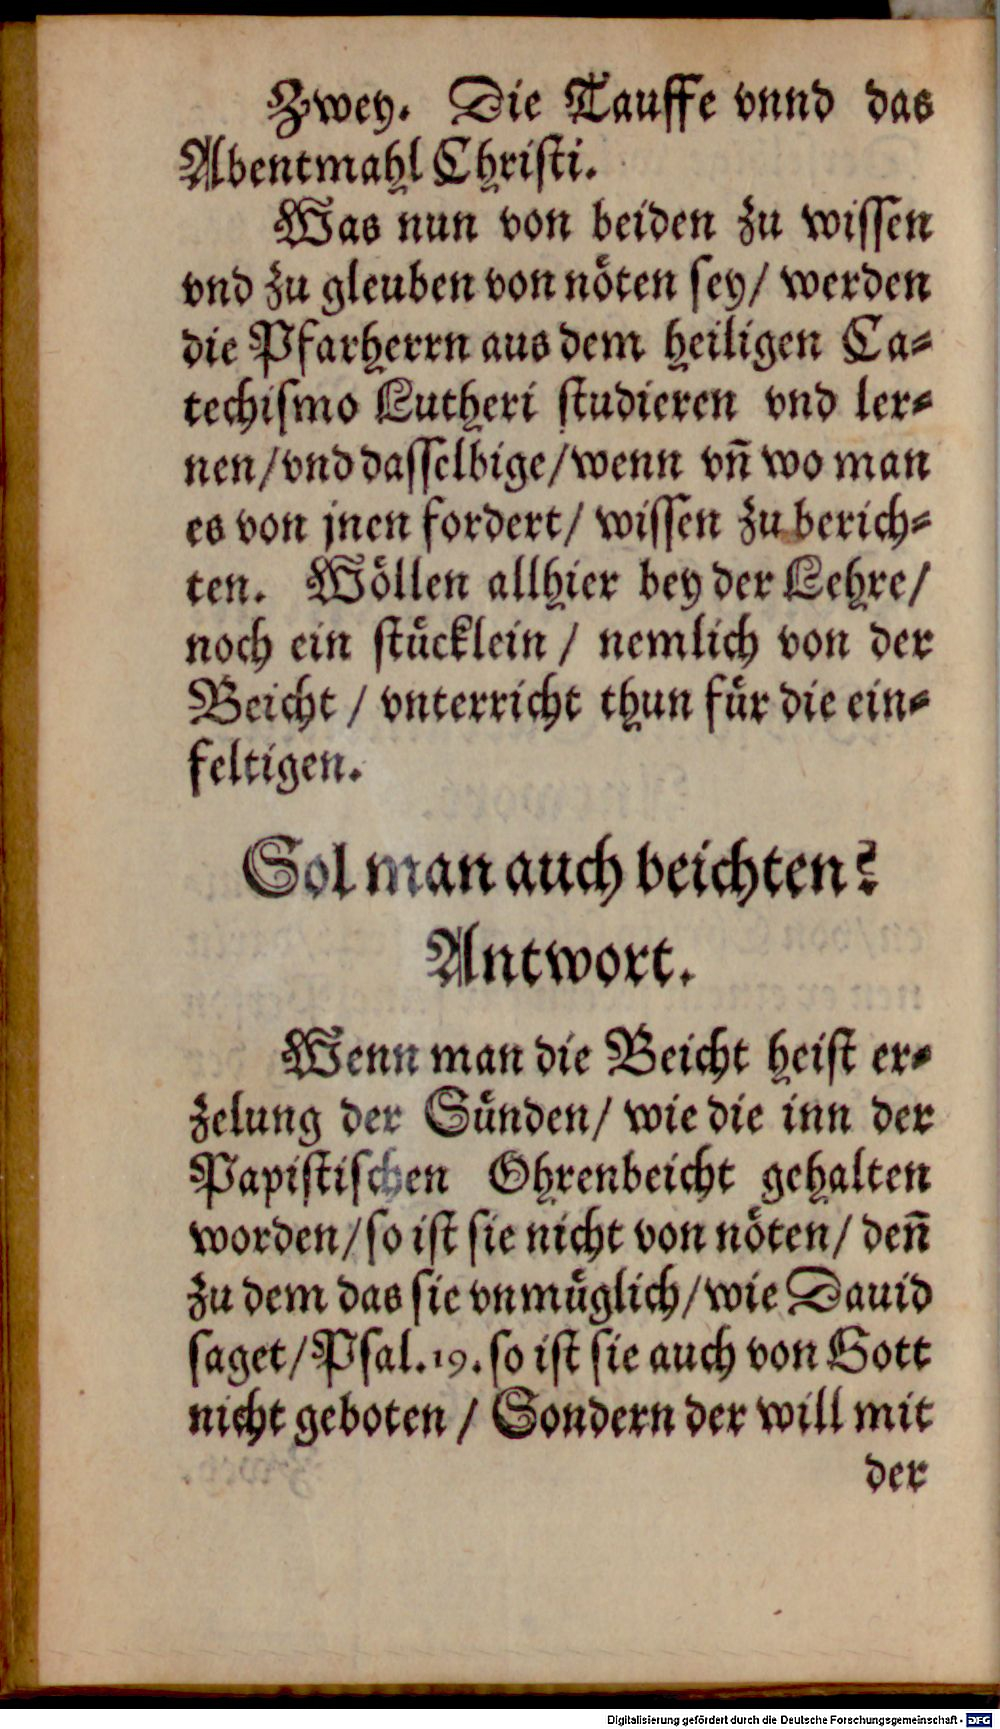 Zwey. Die Tauffe vnnd das
Abentmahl Christi.
Was nun von beiden zu wissen
vnd zu gleuben von nöten sey/ werden
die Pfarherrn aus dem heiligen Ca-
techismo Lutheri studieren vnd ler-
nen/vnd dasselbige/wenn vn̄ wo man
es von jnen fordert/ wissen zu berich-
ten. Wöllen allhier bey der Lehre/
noch ein stücklein / nemlich von der
Beicht / vnterricht thun für die ein-
feltigen.
Sol man auch beichten?
Antwort.
Wenn man die Beicht heist er-
zelung der Sünden/ wie die inn der
Papistischen Ohrenbeicht gehalten
worden/so ist sie nicht von nöten/ den̄
zu dem das sie vnmüglich/wie Dauid
saget/Psal.19. so ist sie auch von Gott
nicht geboten / Sondern der will mit
der
Digitalisierung gefördert durch die Deutsche Forschungsgemeinschaft - DFG